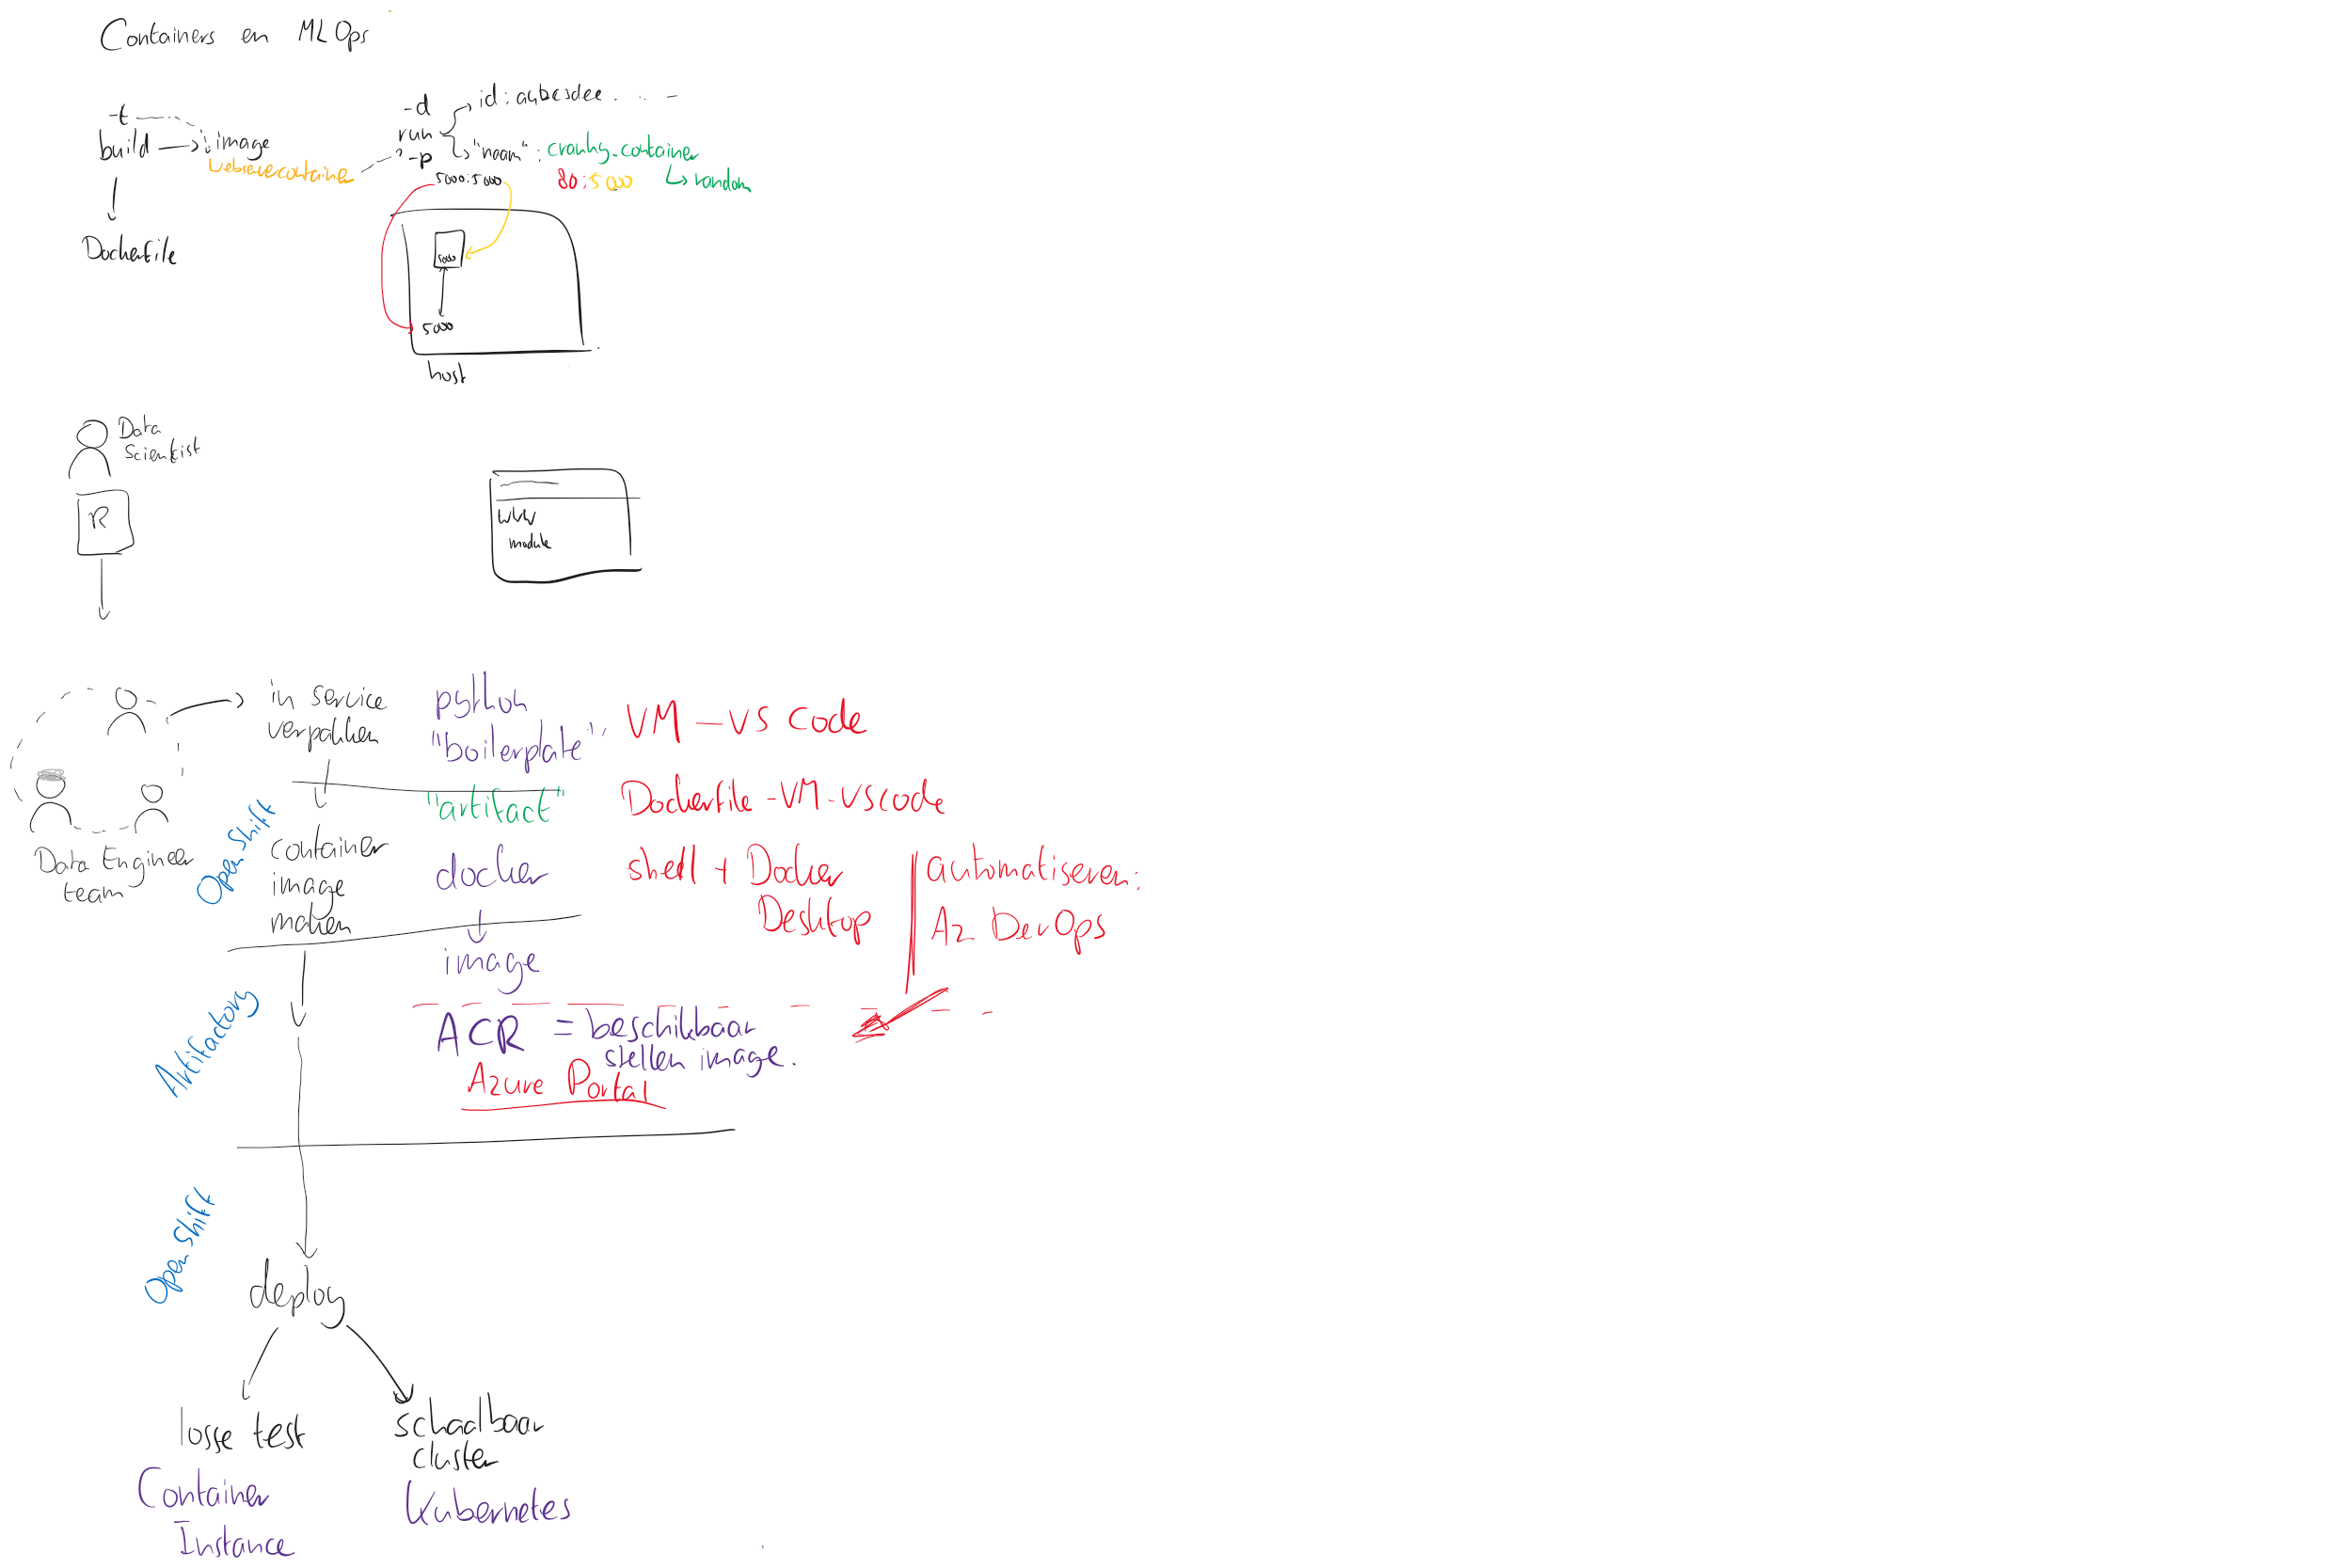 Containers en MLOps
-t
build
image
webservercontainer
Dockerfile
-d
run
-p
id:
"naam": cranky_container
random
5000:5000
80:5000
5000
5000
host
Data
Scientist
R
www
module
in service
verpakken
python
"boilerplate"
VM - VS Code
"artifact"
Dockerfile - VM - VSCode
Data Engineer
team
OpenShift
container
image
maken
docker
shell + Docker
Desktop
automatiseren:
Az DevOps
image
Artifactory
ACR = beschikbaar
stellen image.
Azure Portal
OpenShift
deploy
losse test
Container
Instance
schaalbaar
cluster
Kubernetes